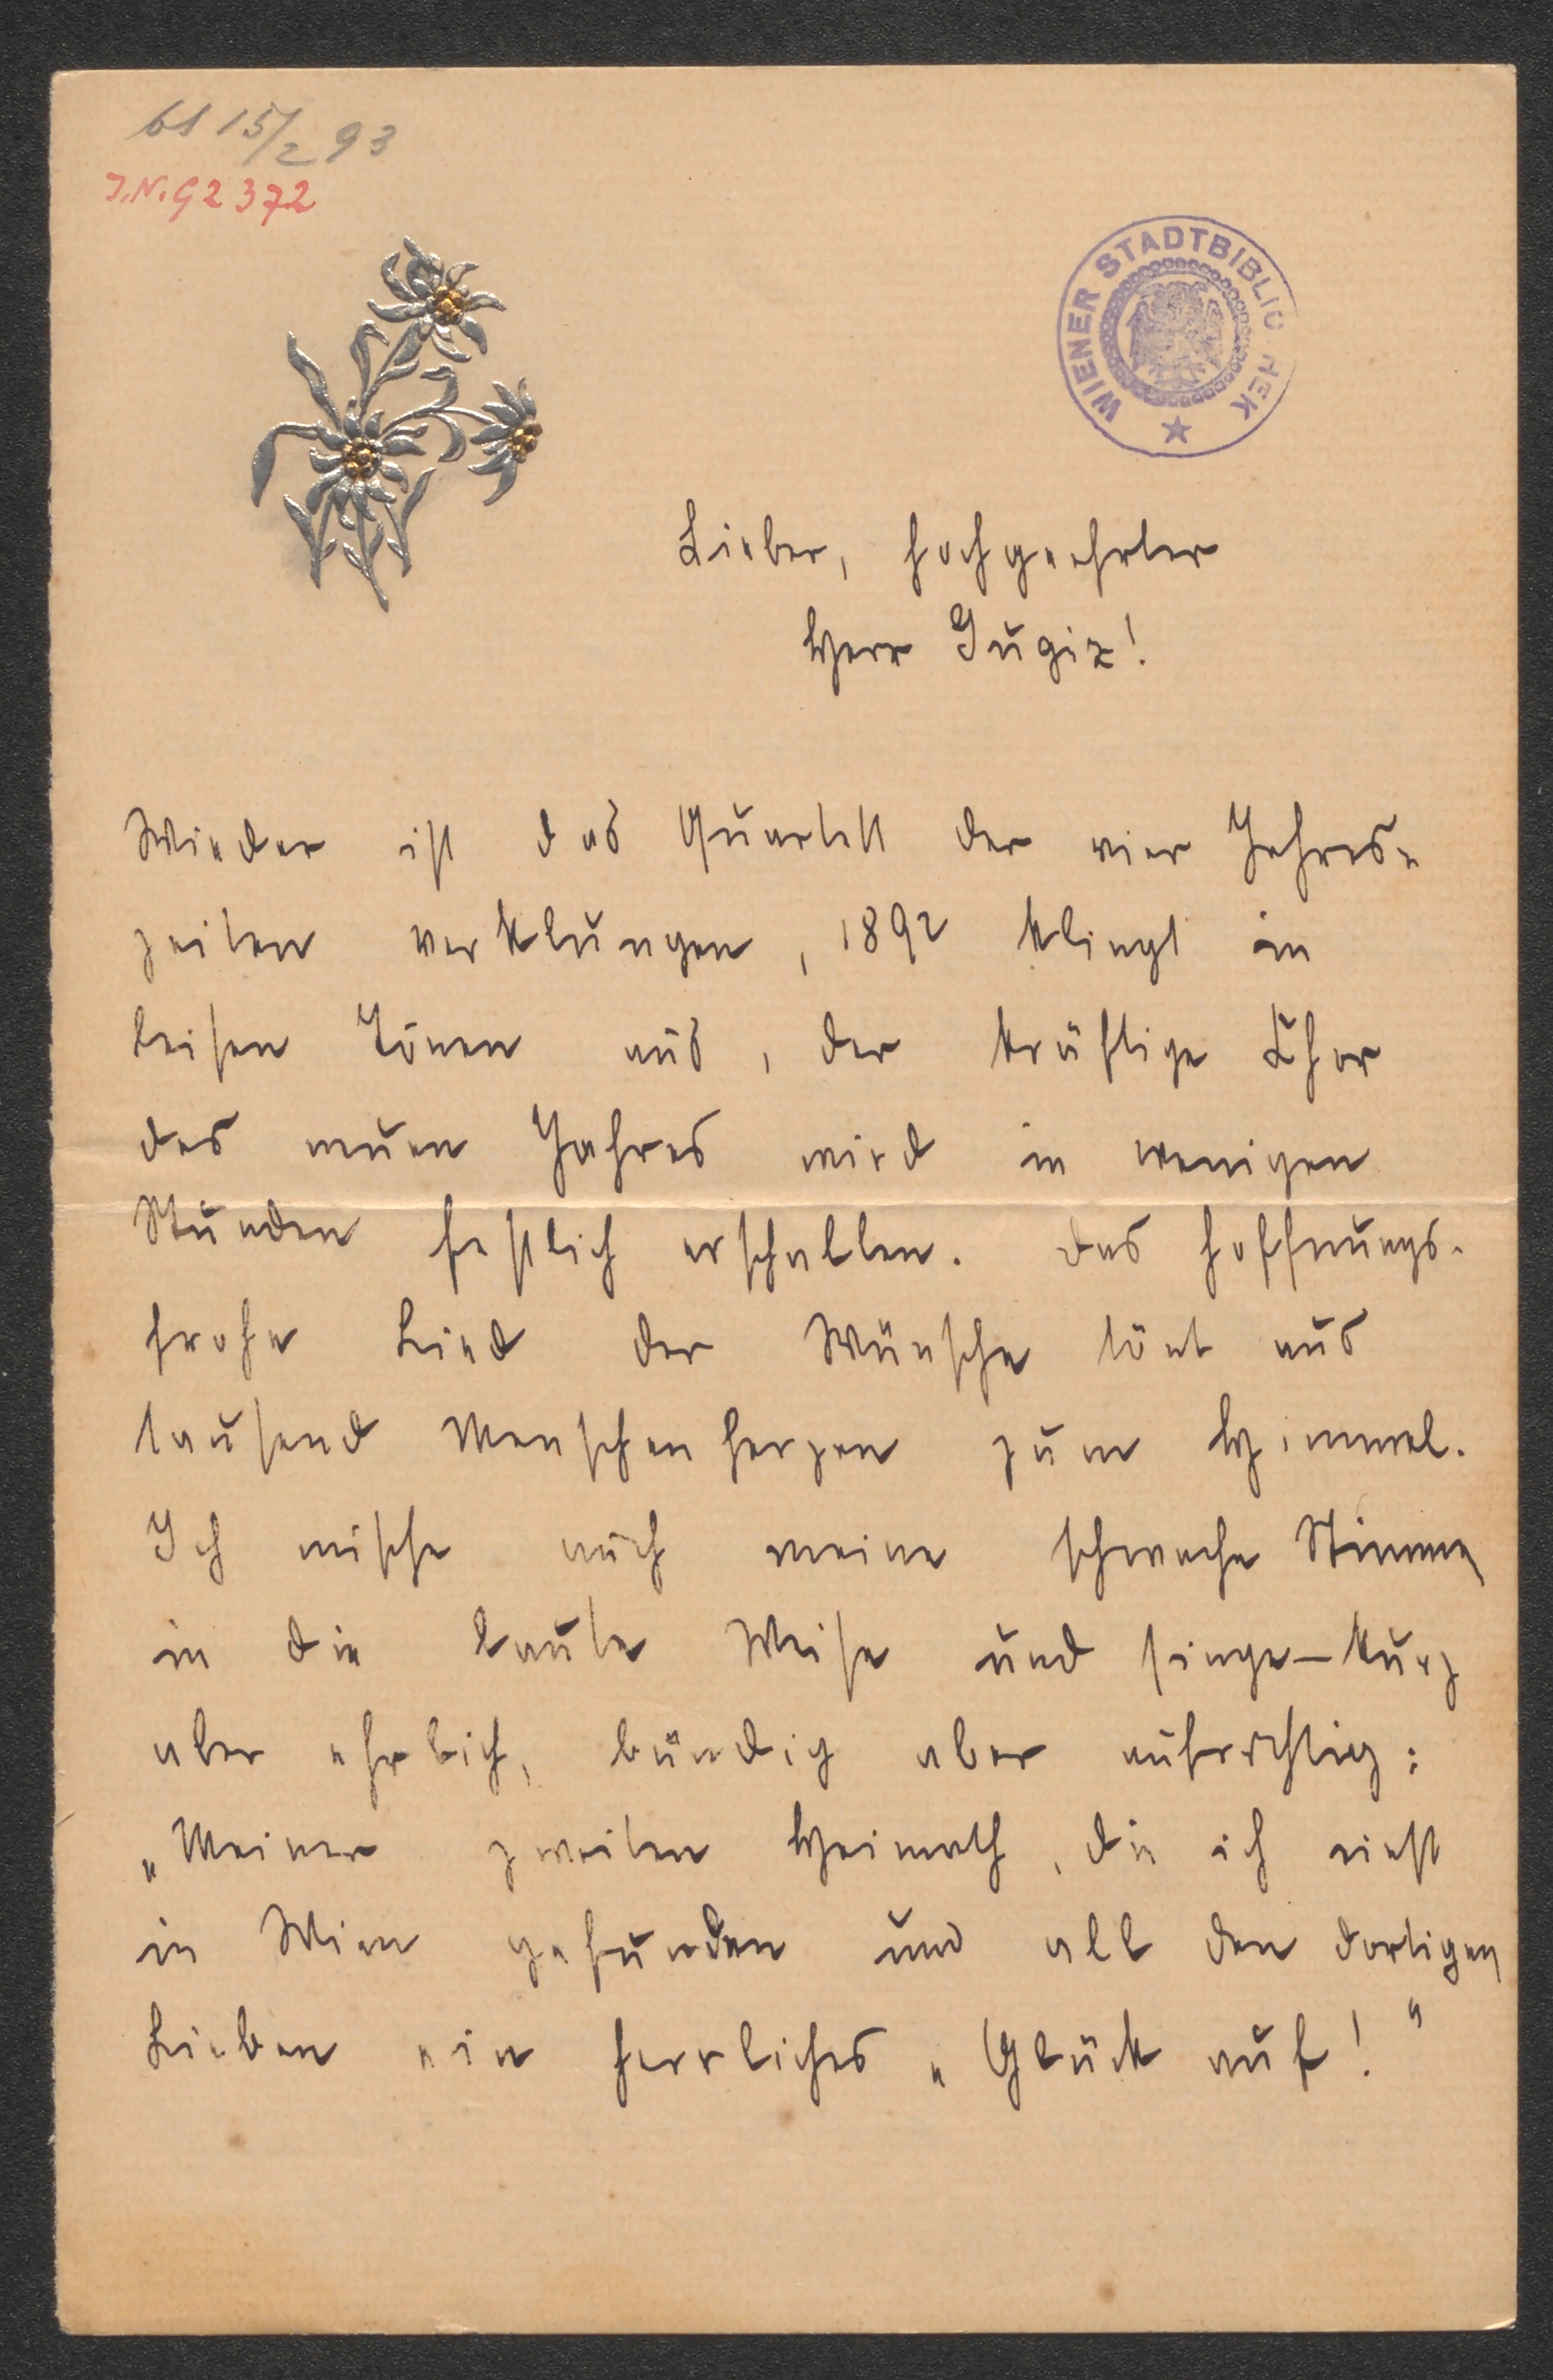 bt 15/2 93
I.N.G2372
WIENER STADTBIBLIO HEK
Lieber, hochgeehrter
Herr Gugiz!
Wieder ist das Quartett der vier Jahres-
zeiten verklungen, 1892 klingt in
leisen Tönen aus, der kräftige Chor
des neuen Jahres wird in wenigen
Stunden festlich erschallen. Das hoffnungs-
frohe Lied der Wünsche tönt aus
tausend Menschenherzen zum Himmel.
Ich mische auch meine schwache Stimme
in die laute Weise und singe – kurz
aber ehrlich, bündig aber aufrichtig:
„Meiner zweiten Heimath, die ich einst
in Wien gefunden und all den dortigen
Lieben ein herrliches „Glück auf!"